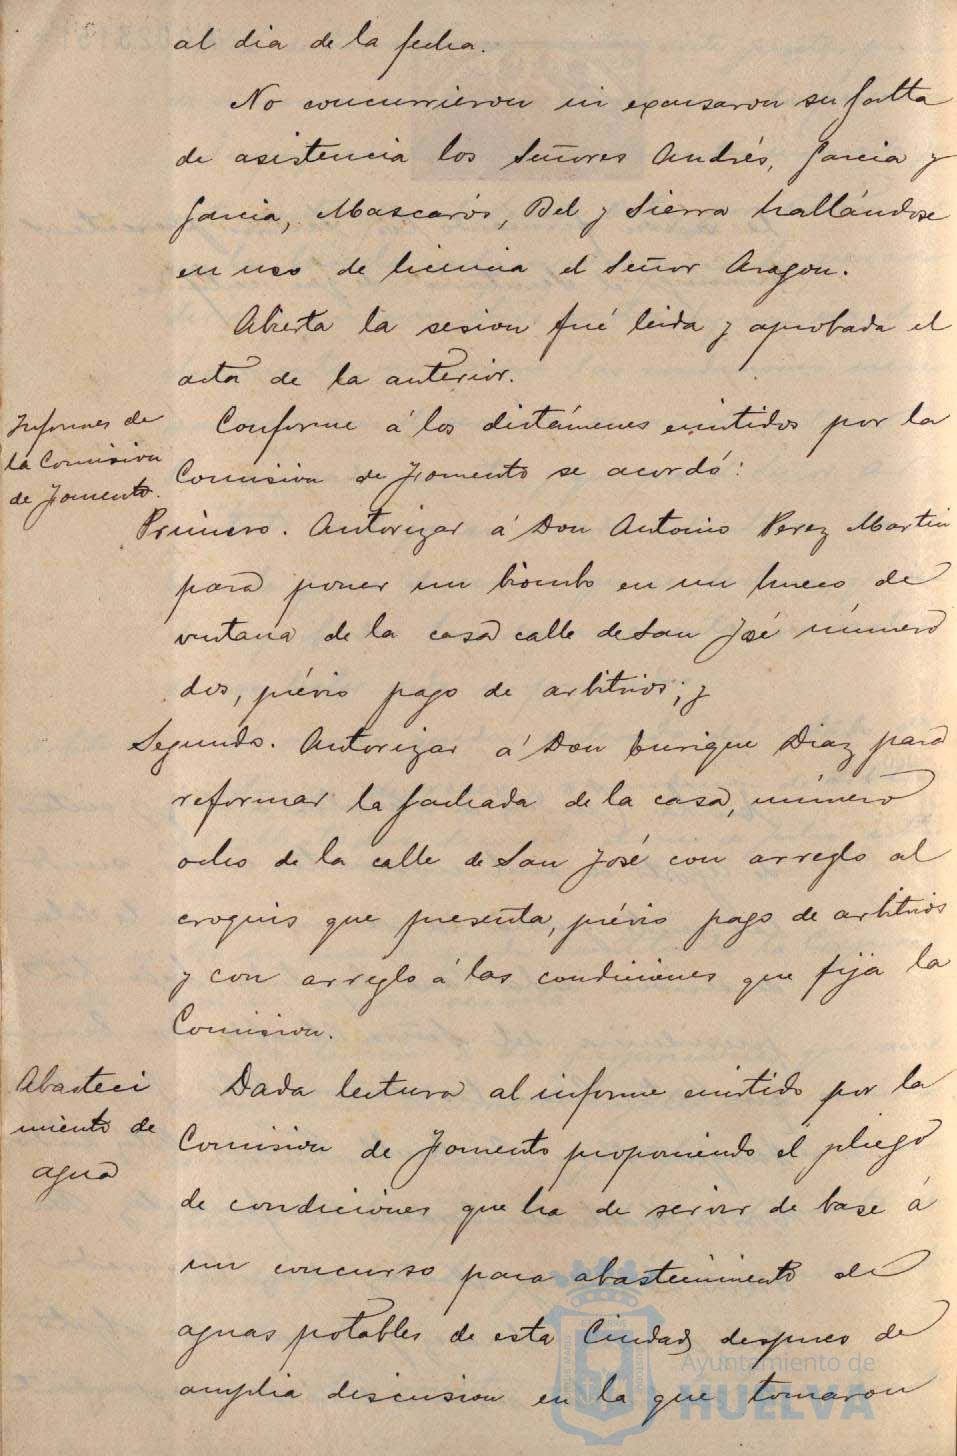 al dia de la fecha.
No concurrieron ni excusaron su falta
de asistencia los Señores Andrés, Garcia y
Garcia, Mascarós, Bel y Sierra hallándose
en uso de licencia el Señor Aragon.
Abierta la sesion fué leida y aprobada el
acta de la anterior.
Informes de
la Comision
de Fomento.
Conforme á los dictámenes emitidos por la
Comision de Fomento se acordó:
Primero. Autorizar á Don Antonio Perez Martin
para poner un biombo en un hueco de
ventana de la casa calle de San José número
dos, prévio pago de arbitrios; y
Segundo. Autorizar á Don Enrique Diaz para
reformar la fachada de la casa, número
ocho de la calle de San José con arreglo al
croquis que presenta, prévio pago de arbitrios
y con arreglo á las condiciones que fija la
Comision.
Abasteci
miento de
agua
Dada lectura al informe emitido por la
Comision de Fomento proponiendo el pliego
de condiciones que ha de servir de base á
un concurso para abastecimiento de
aguas potables de esta Ciudad, despues de
amplia discusion en la que tomaron
Ayuntamiento de
HUELVA